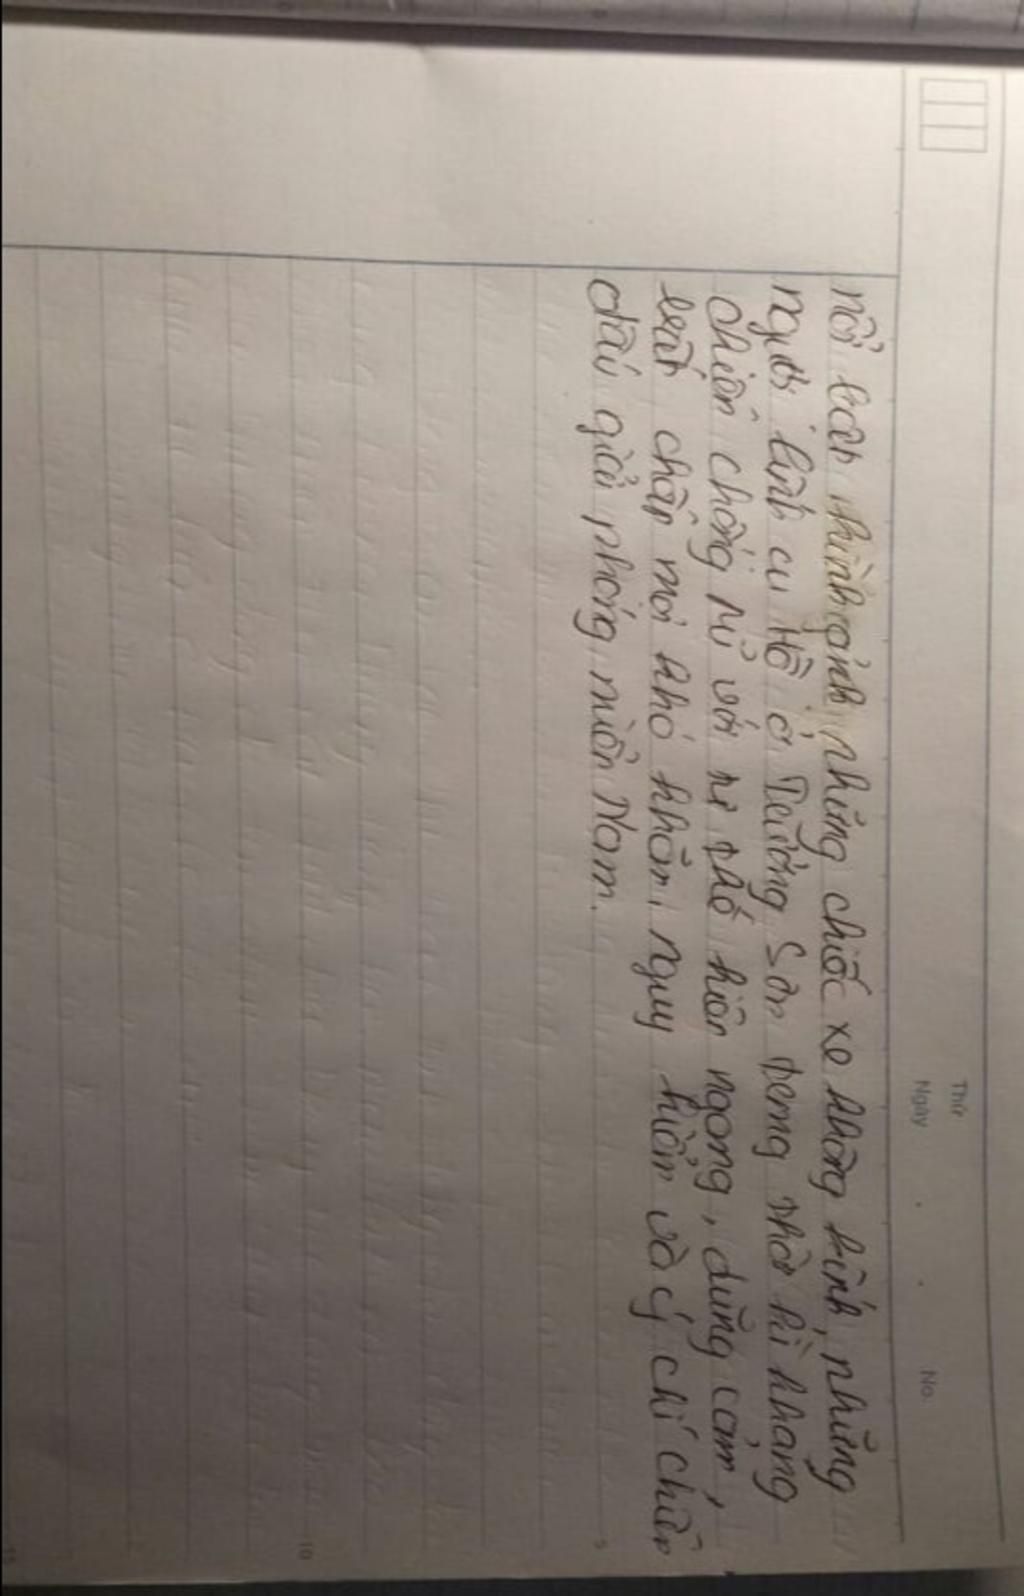 Thứ
Ngày . . No.
nổi bật hình ảnh những chiếc xe không kính, những
người lính cụ Hồ ở Trường Sơn trong thời kì kháng
chiến chống Mĩ với tư thế hiên ngang, dũng cảm,
bất chấp mọi khó khăn, nguy hiểm và ý chí chiến
đấu giải phóng miền Nam.
5
10
15